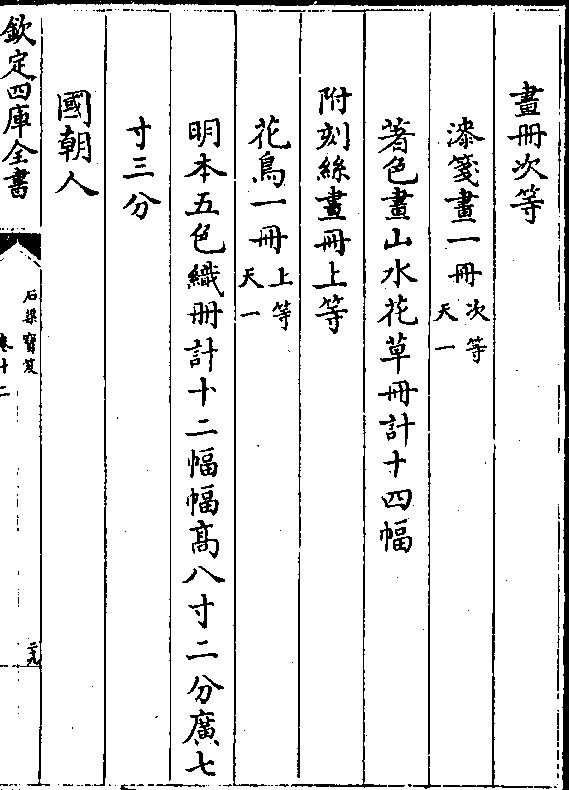 畫冊次等
漆箋畫一冊次等天一
著色畫山水花草冊計十四幅
附刻絲畫冊上等
花鳥一冊上等天一
明本五色織冊計十二幅幅髙八寸二分廣七
寸三分
國朝人
欽定四庫全書
石渠寶笈
卷十二